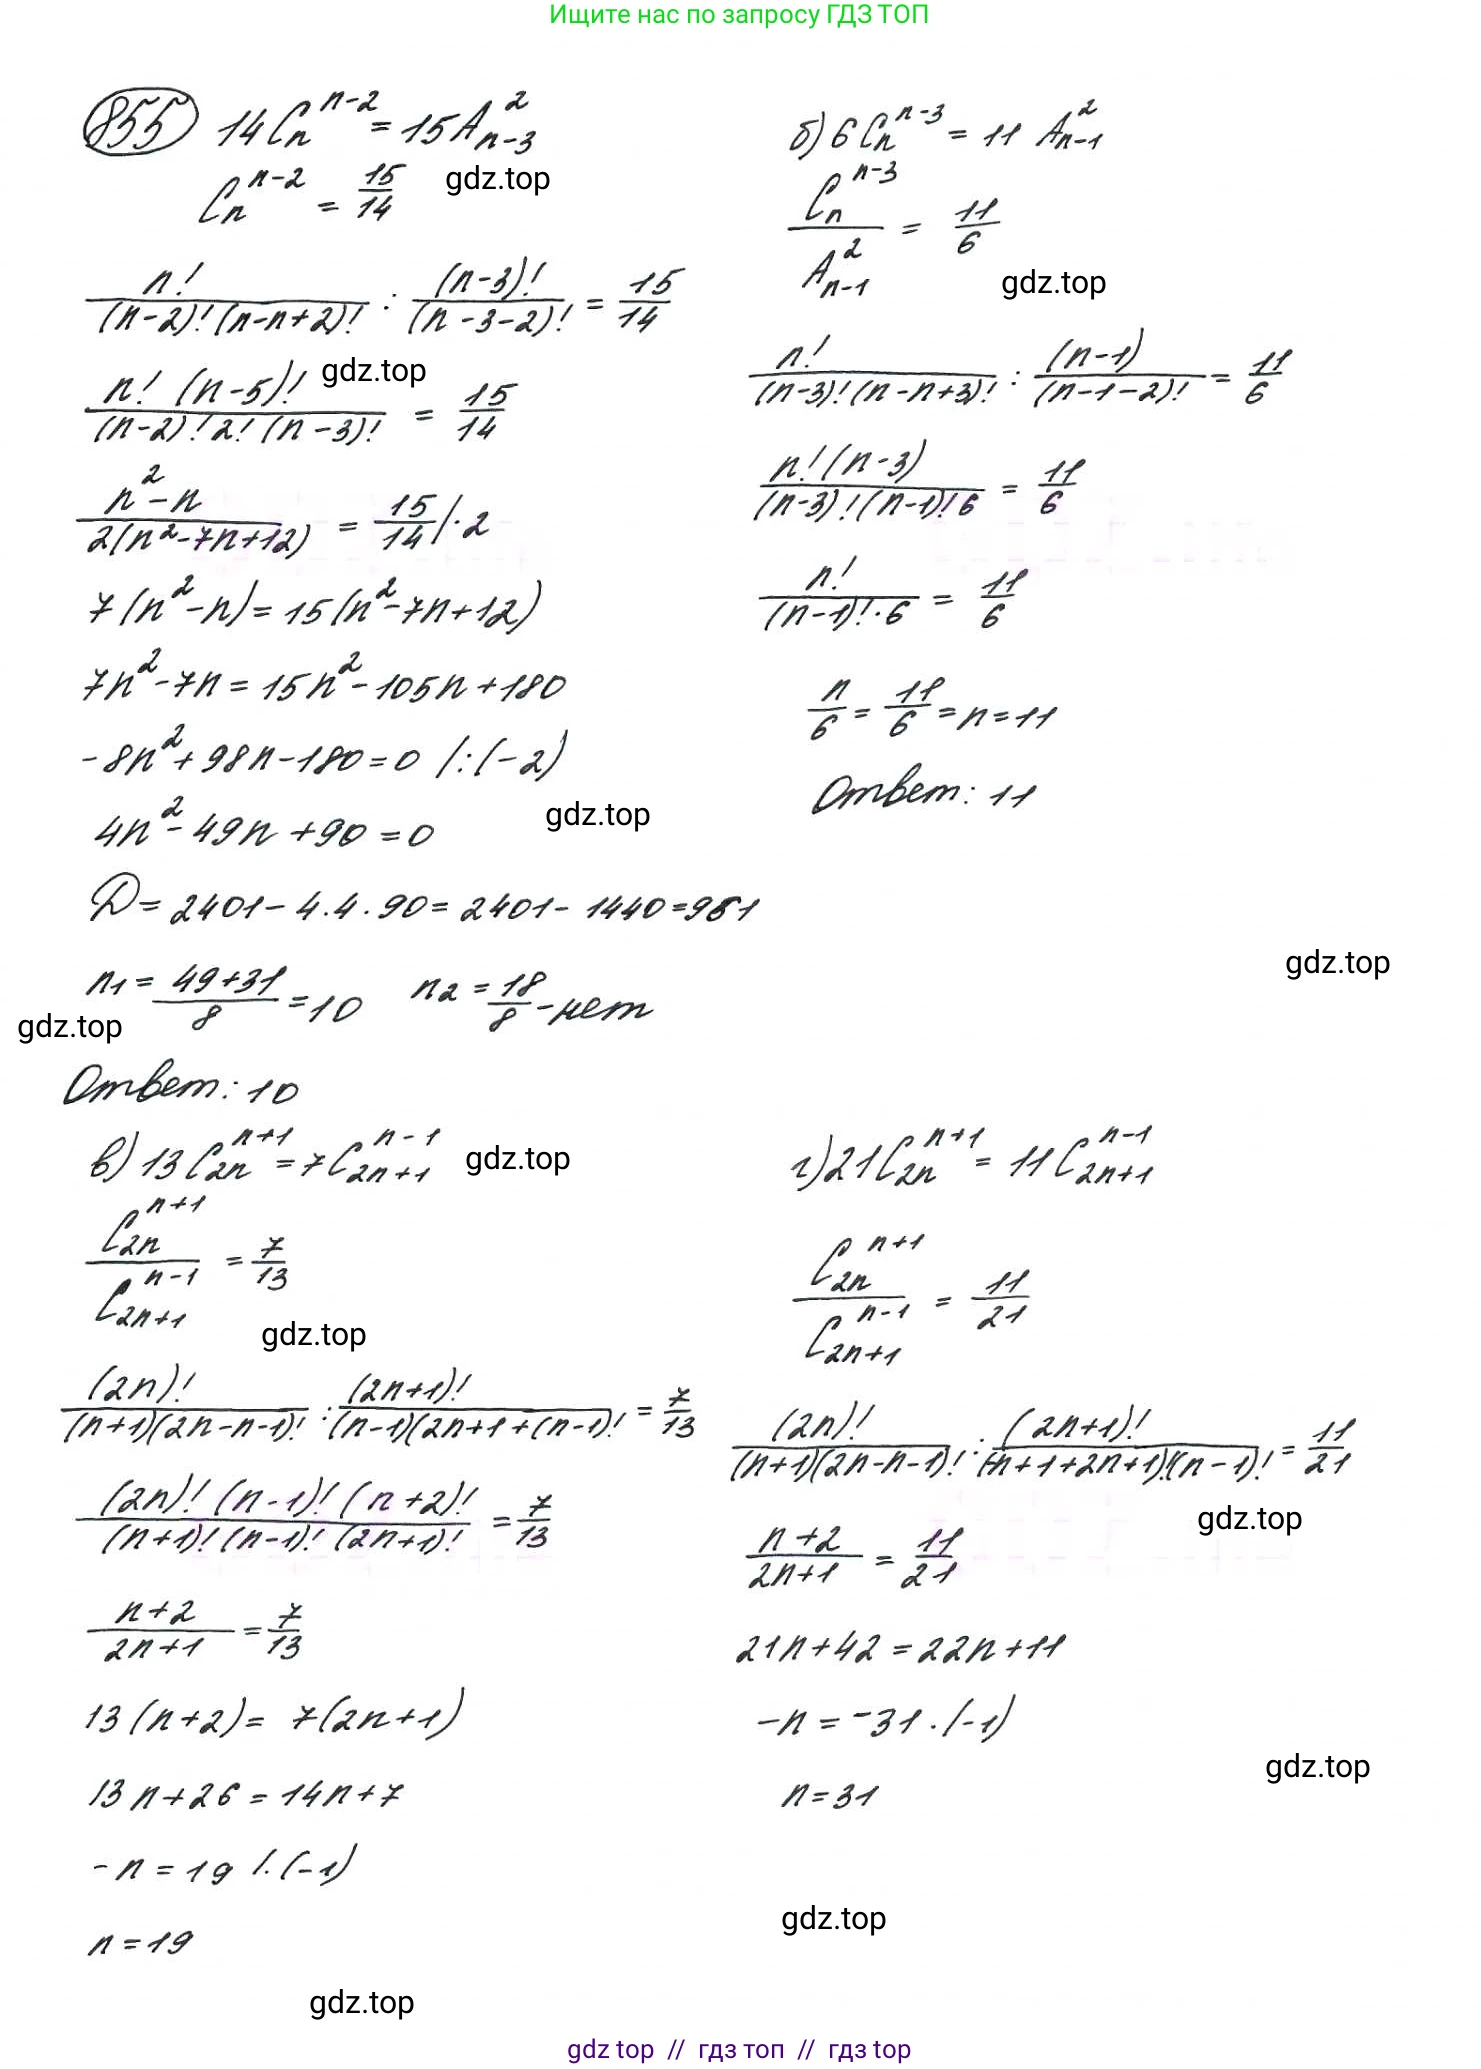 Ищите нас по запросу ГДЗ ТОП
855 14C_n^{n-2} = 15A_{n-3}^2
C_n^{n-2} = 15/14
gdz.top
n!/((n-2)!(n-n+2)!) : (n-3)!/(n-3-2)! = 15/14
n!(n-5)!/((n-2)!2!(n-3)!) = 15/14
gdz.top
(n^2-n)/(2(n^2-7n+12)) = 15/14 /·2
7(n^2-n) = 15(n^2-7n+12)
7n^2-7n = 15n^2-105n+180
-8n^2+98n-180=0 /:(-2)
4n^2-49n+90=0
gdz.top
D=2401-4·4·90=2401-1440=961
n1 = (49+31)/8 = 10 n2 = 18/8 - нет
gdz.top
Ответ: 10
б) 6C_n^{n-3} = 11 A_{n-1}^2
C_n^{n-3}/A_{n-1}^2 = 11/6
gdz.top
n!/((n-3)!(n-n+3)!) : (n-1)/(n-1-2)! = 11/6
n!(n-3)/((n-3)!(n-1)!6) = 11/6
n!/((n-1)!·6) = 11/6
n/6 = 11/6 = n=11
Ответ: 11
gdz.top
в) 13C_{2n}^{n+1} = 7C_{2n+1}^{n-1}
gdz.top
C_{2n}^{n+1}/C_{2n+1}^{n-1} = 7/13
gdz.top
(2n)!/((n+1)(2n-n-1)!) : (2n+1)!/((n-1)(2n+1+(n-1)!) = 7/13
(2n)!(n-1)!(n+2)!/((n+1)!(n-1)!(2n+1)!) = 7/13
(n+2)/(2n+1) = 7/13
13(n+2) = 7(2n+1)
13n+26=14n+7
-n=19 /·(-1)
n=19
gdz.top
г) 21C_{2n}^{n+1} = 11C_{2n+1}^{n-1}
C_{2n}^{n+1}/C_{2n+1}^{n-1} = 11/21
(2n)!/((n+1)(2n-n-1)!) : (2n+1)!/((-n+1+2n+1)!(n-1)!) = 11/21
gdz.top
(n+2)/(2n+1) = 11/21
21n+42=22n+11
-n=-31·(-1)
gdz.top
n=31
gdz.top
gdz top // гдз топ // гдз top